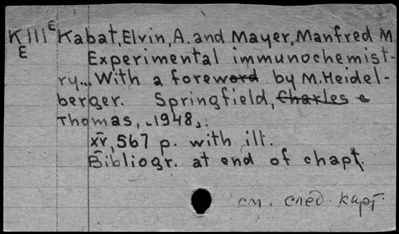 K III E Kabat, Elvin, A. and Mayer, Manfred M.
E Experimental immunochemist-
ry... With a foreword by M. Heidel-
berger. Springfield, Charles c
Thomas, 1948.
XV, 567 p. with ill.
Bibliogr. at end of chapt.
см. след. карт.